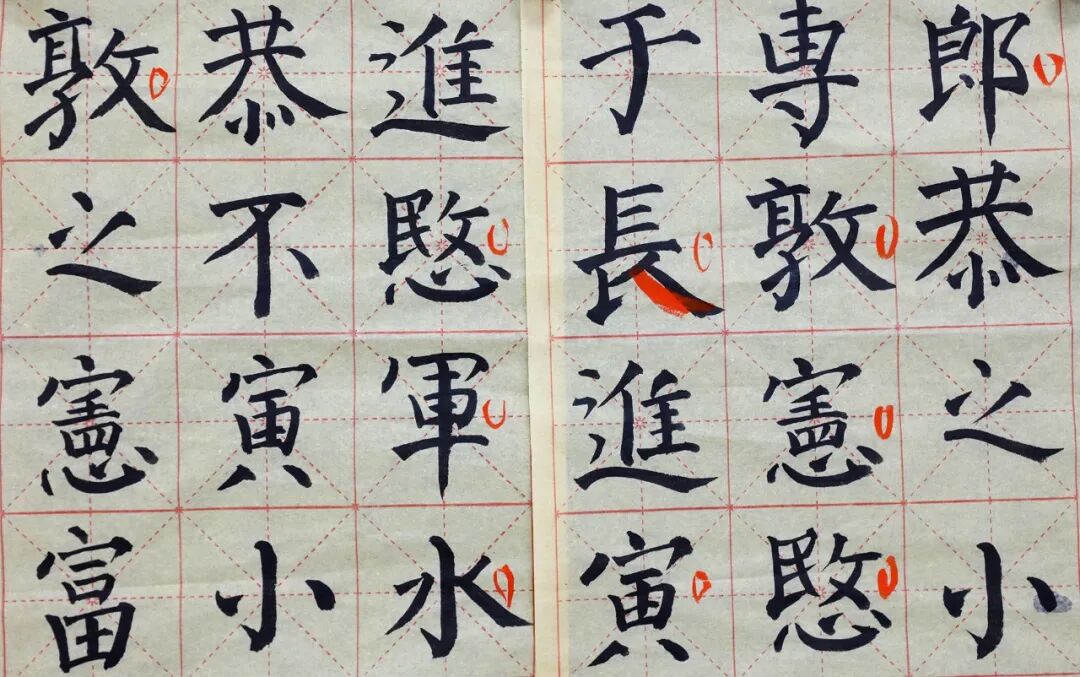 郎恭之小
専敦憲愍
于長進寅
進愍軍水
恭不寅小
敦之憲富